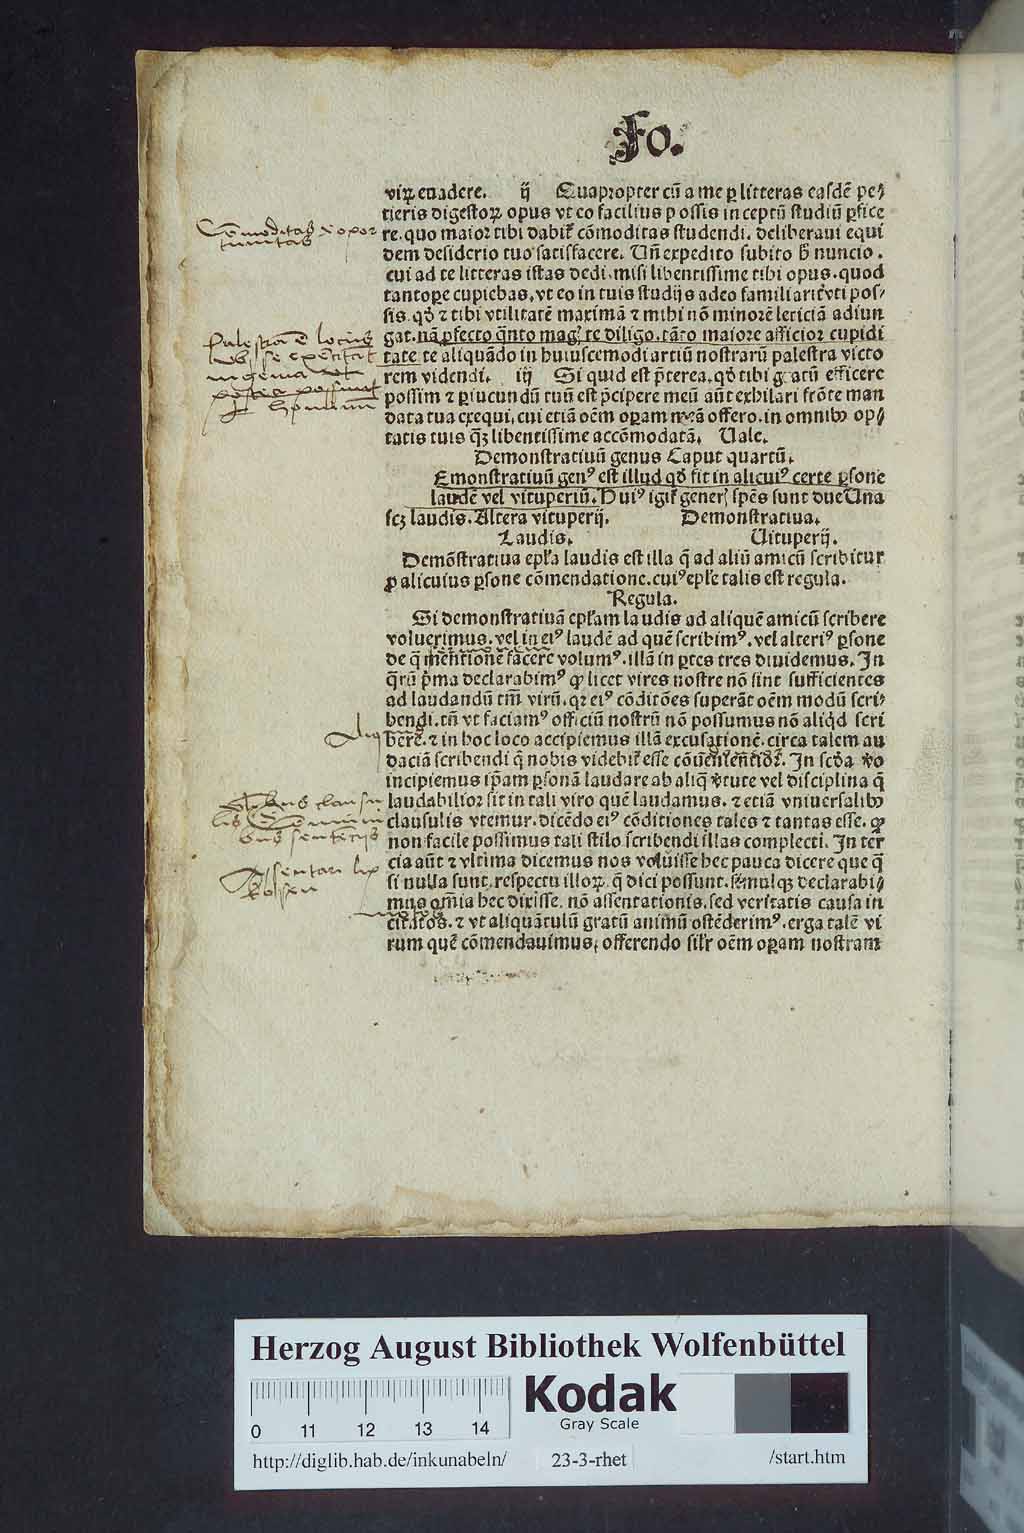 Fo.
viꝝ euadere. ij Quapropter cū a me ꝑ litteras easdē pe⸗
tieris digestoꝝ opus vt eo facilius possis inceptū studiū ꝑfice
re. quo maior tibi dabit̉ cōmoditas studendi. deliberaui equi
dem desiderio tuo satisfacere. Uñ expedito subito h̄ nuncio.
cui ad te litteras istas dedi. misi libentissime tibi opus. quod
tantopere cupiebas, vt eo in tuis studijs adeo familiarit̉ vti pos⸗
sis. qd̓ ⁊ tibi vtilitatē maximā ⁊ mihi nō minorē leticiā adiun
gat. nā ꝓfecto q̄nto magꝭ te diligo. tāto maiore afficior cupidi
tate te aliquādo in huiuscemodi artiū nostrarū palestra victo
rem videndi. iij Si quid est p̄terea. qd̓ tibi gratū efficere
possim ⁊ ꝑiucundū tuū est p̄cipere meū aūt exhilari frōte man
data tua exequi, cui etiā oēm oꝑam meā offero. in omnibꝰ op⸗
tatis tuis q̄ꝫ libentissime accōmodatā. Uale.
Demonstratiuū genus Caput quartū.
Emonstratiuū genꝰ est illud qd̓ fit in alicuiꝰ certe ꝑsone
laudē vel vituperiū. Huiꝰ igit̉ generꝭ spēs sunt due Una
scꝫ laudis. Altera vituperij. Demonstratiua.
Laudis. Uituperij.
Demōstratiua epl̄a laudis est illa q̄ ad aliū amicū scribitur
ꝓ alicuius ꝑsone cōmendatione. cuiꝰ epl̄e talis est regula.
Regula.
Si demonstratiuā epl̄am laudis ad aliquē amicū scribere
voluerimus. vel in eiꝰ laudē ad quē scribimꝰ. vel alteriꝰ ꝑsone
de q̄ mentionē facere volumꝰ. illā in ꝑtes tres diuidemus. In
q̄rū p̄ma declarabimꝰ ꝙ licet vires nostre nō sint sufficientes
ad laudandū tm̄ virū. qꝛ eiꝰ cōditōes superāt oēm modū scri⸗
bendi. tñ vt faciamꝰ officiū nostrū nō possumus nō aliqd̓ scri
bere. ⁊ in hoc loco accipiemus illā excusationē. circa talem au
daciā scribendi q̄ nobis videbit̉ esse cōuenientior. In scd̓a vo
incipiemus ip̄am ꝑsonā laudare ab aliq̄ v̓tute vel disciplina q̄
laudabilior sit in tali viro quē laudamus. ⁊ etiā vniuersalibꝰ
clausulis vtemur. dicēdo eiꝰ cōditiones tales ⁊ tantas esse. ꝙ
non facile possimus tali stilo scribendi illas complecti. In ter
cia aūt ⁊ vltima dicemus nos voluisse hec pauca dicere que q̄
si nulla sunt respectu illoꝝ q̄ dici possunt. simulqꝫ declarabi⸗
mus om̄ia hec dixisse. nō assentationis. sed veritatis causa in
citatos. ⁊ vt aliquātulū gratū animū ostēderimꝰ. erga talē vi
rum quē cōmendauimus, offerendo silr̄ oēm oꝑam nostram
Cōmoditas
Palestra ē locus
Herzog August Bibliothek Wolfenbüttel
Kodak
Gray Scale
0 11 12 13 14
http://diglib.hab.de/inkunabeln/ 23-3-rhet /start.htm